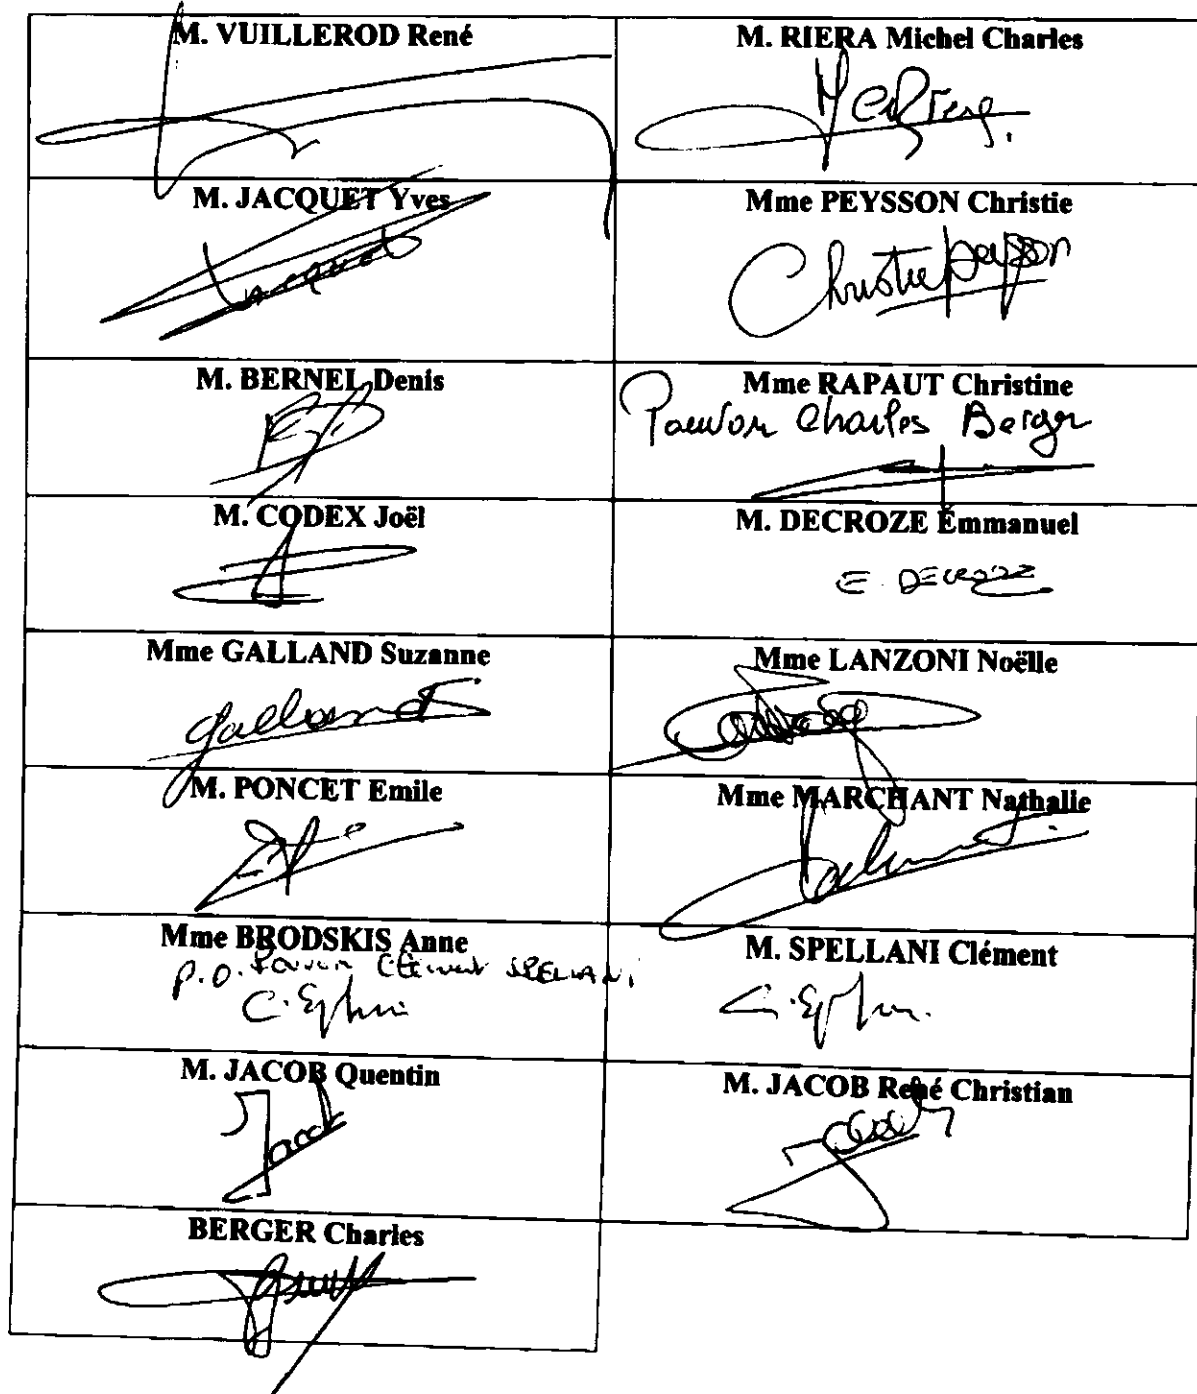 M. VUILLEROD René
M. RIERA Michel Charles
M. JACQUET Yves
Jacquet
Mme PEYSSON Christie
Christie peysson
M. BERNEL Denis
Mme RAPAUT Christine
Pouvoir Charles Berger
M. CODEX Joël
M. DECROZE Emmanuel
E. DECROZE
Mme GALLAND Suzanne
Galland
Mme LANZONI Noëlle
M. PONCET Emile
Mme MARCHANT Nathalie
Mme BRODSKIS Anne
P.O. Pouvoir Clément SPELLANI
M. SPELLANI Clément
M. JACOB Quentin
Jacob
M. JACOB René Christian
Jacob
BERGER Charles